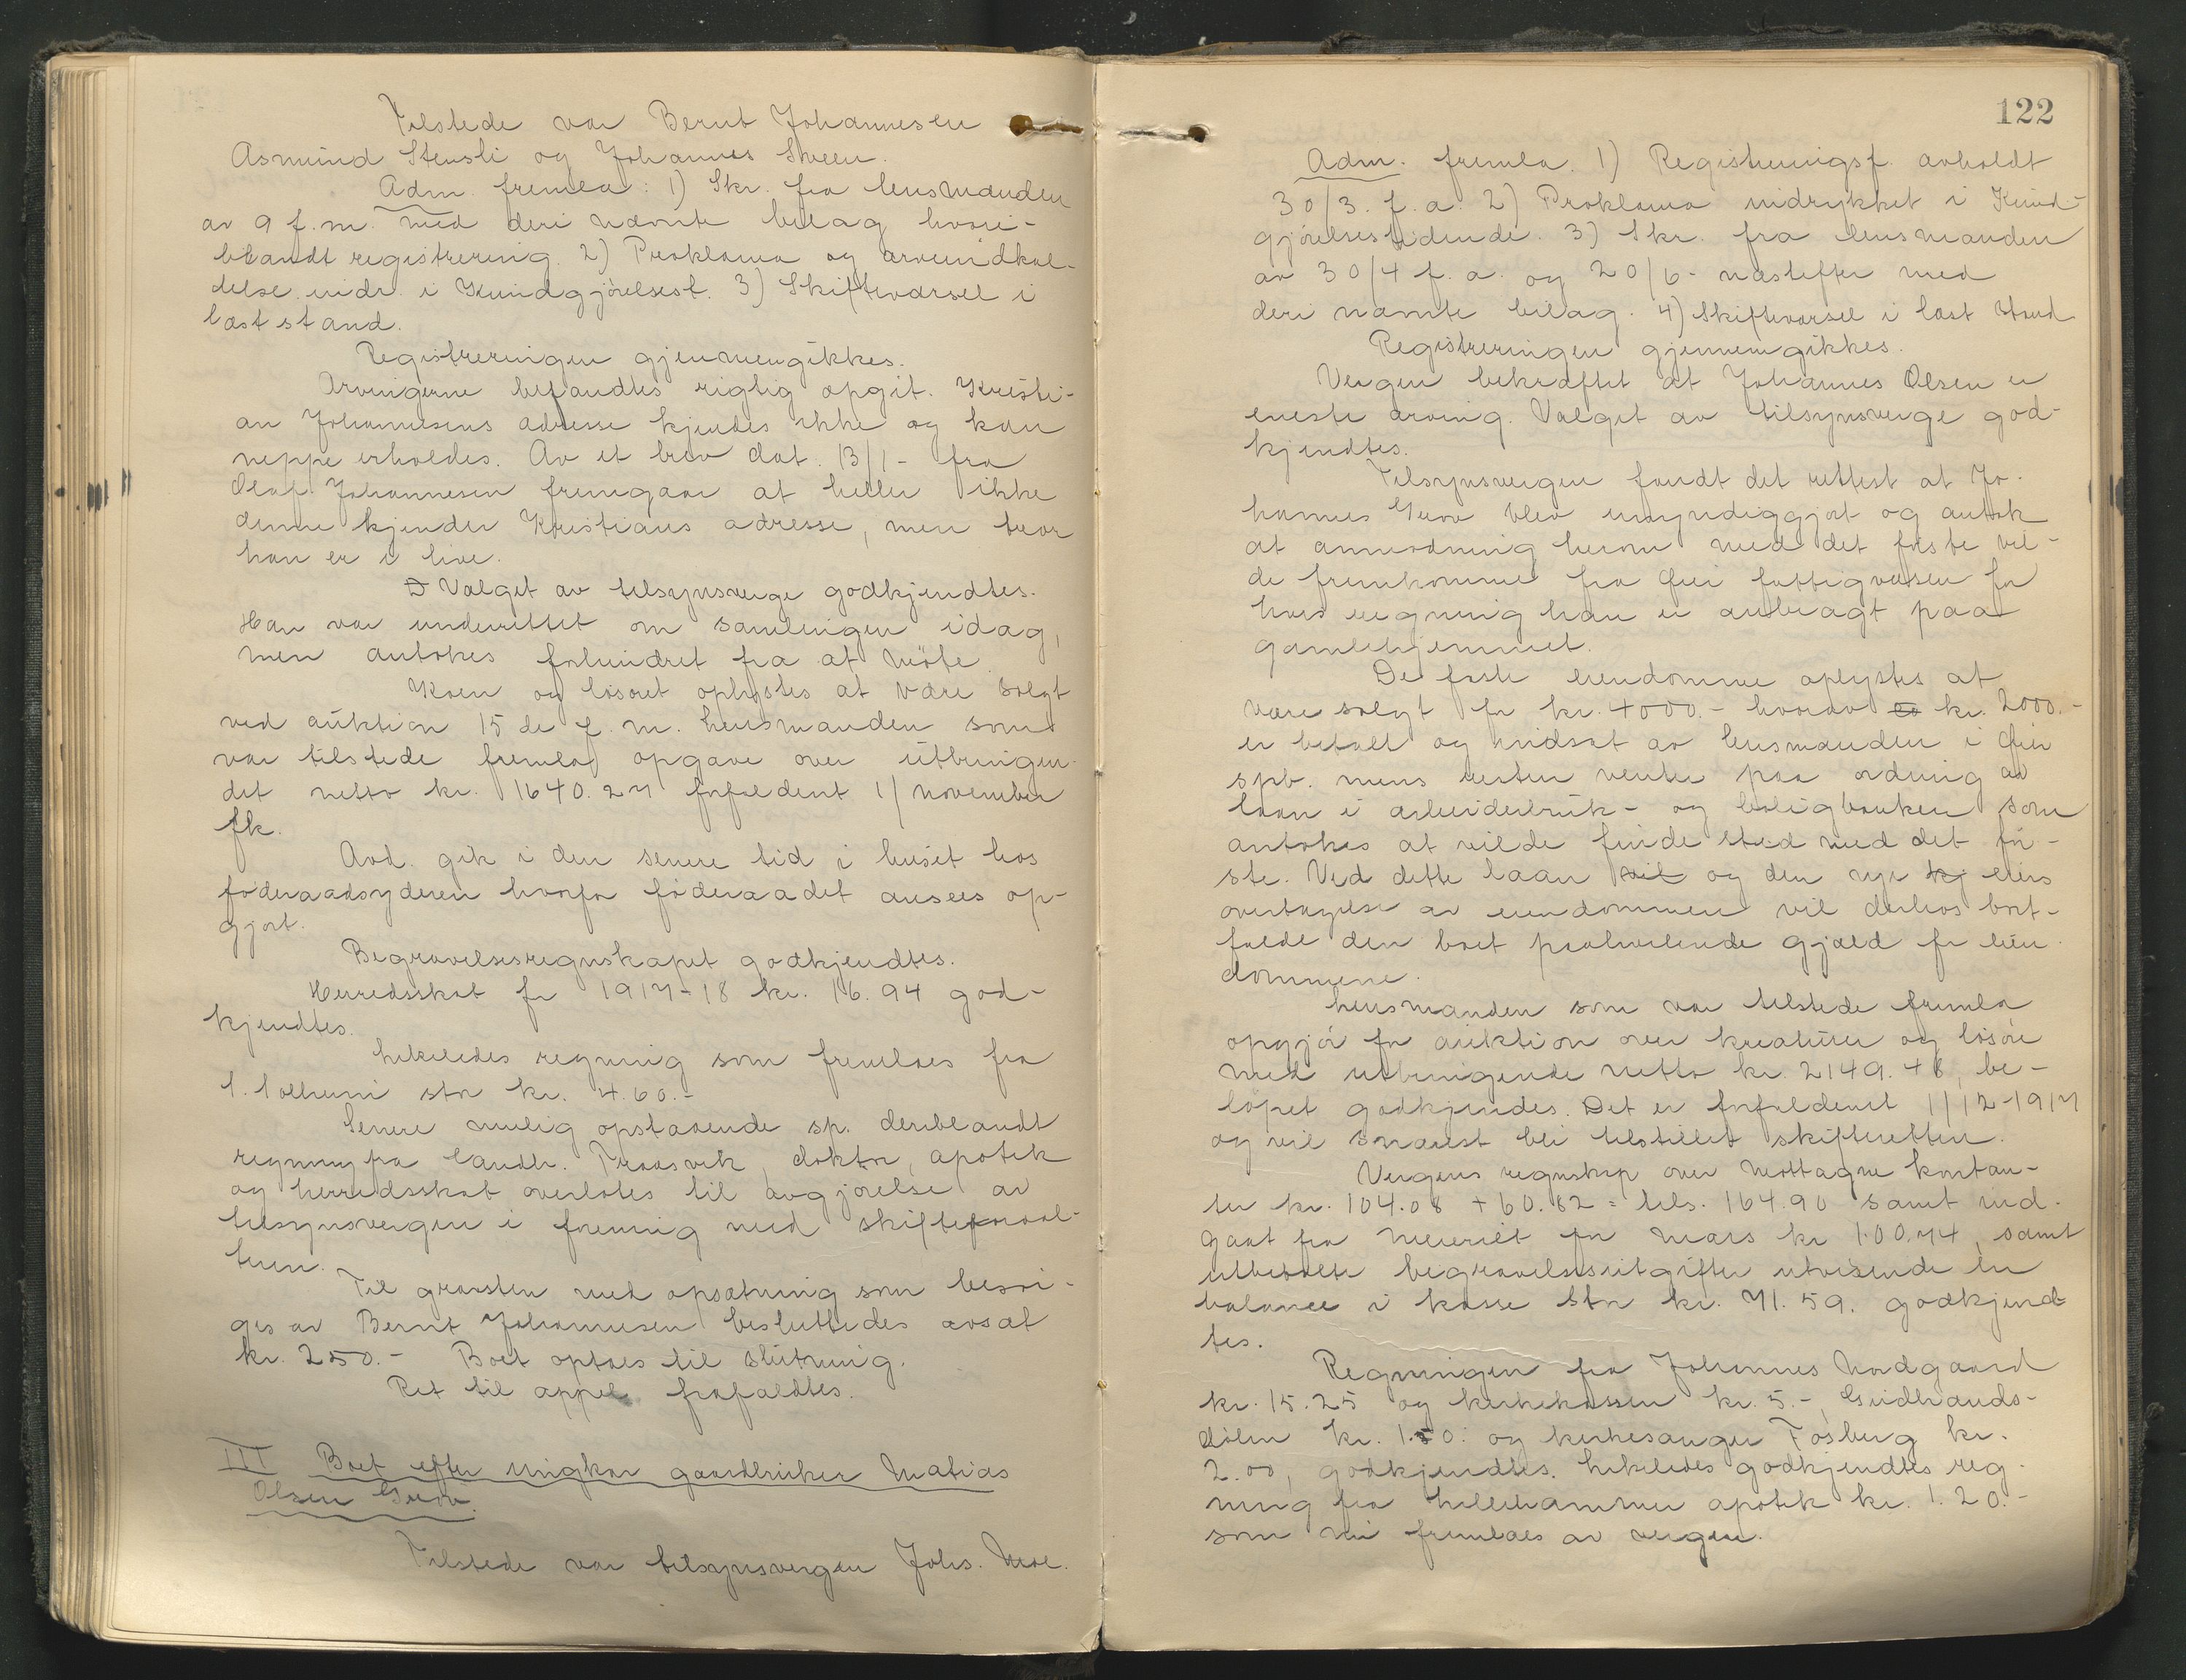 Tilstede var Bernt Johannesen
Asmund Stensli og Johannes Sveen.
Adm. fremla: 1) Skr. fra lensmanden
av 9 f.m. med deri nævnte bilag hvori-
blandt registrering 2) Proklama og arveindkal-
delse indr. i Kundgjørelsest. 3) Skiftevarsel i
læst stand.
Registreringen gjennemgikkes.
Arvingerne befandtes rigtig opgit. Kristi-
an Johannesens adresse kjendes ikke og kan
neppe erholdes. Av et brev dat. 13/1 - fra
Olaf Johannesen fremgaar at heller ikke
denne kjender Kristians adresse, men tror
han er i live.
Valget av tilsynsverge godkjendtes.
Han var underrettet om samlingen idag,
men antokes forhindret fra at møte.
Koen og løsøret oplystes at være solgt
ved auktion 15 de f.m. Lensmanden som
var tilstede fremla opgave over utbringen-
det netto kr. 1640.27 forfaldent 1/ november
fk.
Avd. gik i den senere tid i huset hos
føderaadsyderen hvorfor føderaadet ansees op-
gjort.
Begravelsesregnskapet godkjendtes.
Herredsskat for 1917-18 kr. 16.94 god-
kjendtes.
Likeledes regning som fremlaes fra
L. stor kr. 4.60.-
Senere mulig opstaaende sp. deriblandt
regning fra landh. Traasvik, doktor, apotek
og herredsskat overlotes til avgjørelse av
tilsynsvergen i forening med skifteforval-
teren.
Til gravsten med opsætning som besør-
ges av Bernt Johannesen besluttedes avsat
kr. 250.- Boet optaes til slutning.
Ret til appel frafaldtes.
III Boet efter ungkar gaardbruker Matias
Olsen Surv.
Tilstede var tilsynsvergen Johs. Moe.
122
Adm. fremla. 1) Registreringsf. avholdt
30/3. f.a. 2) Proklama indrykket i Kund-
gjørelsestidende. 3) Skr. fra lensmanden
av 30/4 f.a. og 20/6 - næstefter med
deri nævnte bilag. 4) Skiftevarsel i læst stand
Registreringen gjennemgikkes.
Vergen bekræftet at Johannes Olsen er
eneste arving. Valget av tilsynsverge god-
kjendtes.
Tilsynsvergen fandt det rettest at Jo-
hannes blev umyndiggjort og antok
at anmodning herom med det første vil-
de fremkomme fra fattigvæsen for
hvis regning han er anbragt paa
gamlehjemmet.
De faste eiendomme oplystes at
være solgt for kr. 4000.- hvorav kr. 2000.-
er betalt og indsat av lensmanden i
spb. mens resten venter paa ordning av
laan i arbeiderbruk- og boligbanken som
antokes at vilde finde sted med det før-
ste. Ved dette laan og den nye eiers
overtagelse av eiendommen vil derhos bort-
falde den boet paahvilende gjæld for eien-
dommene.
Lensmanden som var tilstede fremla
opgjør for auktion over kreaturer og løsøre
med utbringende netto kr. 2149.48, be-
løpet godkjendes. Det er forfaldent 1/12-1917
og vil snarest bli tilstillet skifteretten.
Vergens regnskap over mottagne kontan-
ter kr. 104.08 + 60.82 = tils. 164.90 samt ind-
gaat fra meieriet for mars kr 100.74, samt
utbetalte begravelsesutgifter utvisende en
balance i kasse stor kr. 71.59. godkjend-
tes.
Regningen fra Johannes Nordgaard
kr. 15.25 og kirkekassen kr. 5.-, Gudbrands-
dølen kr. 1.50. og kirkesanger Fosberg kr.
2.00, godkjendtes. Likeledes godkjendtes reg-
ning fra Lillehammer apotek kr. 1.20.-
som nu fremlaes av vergen.